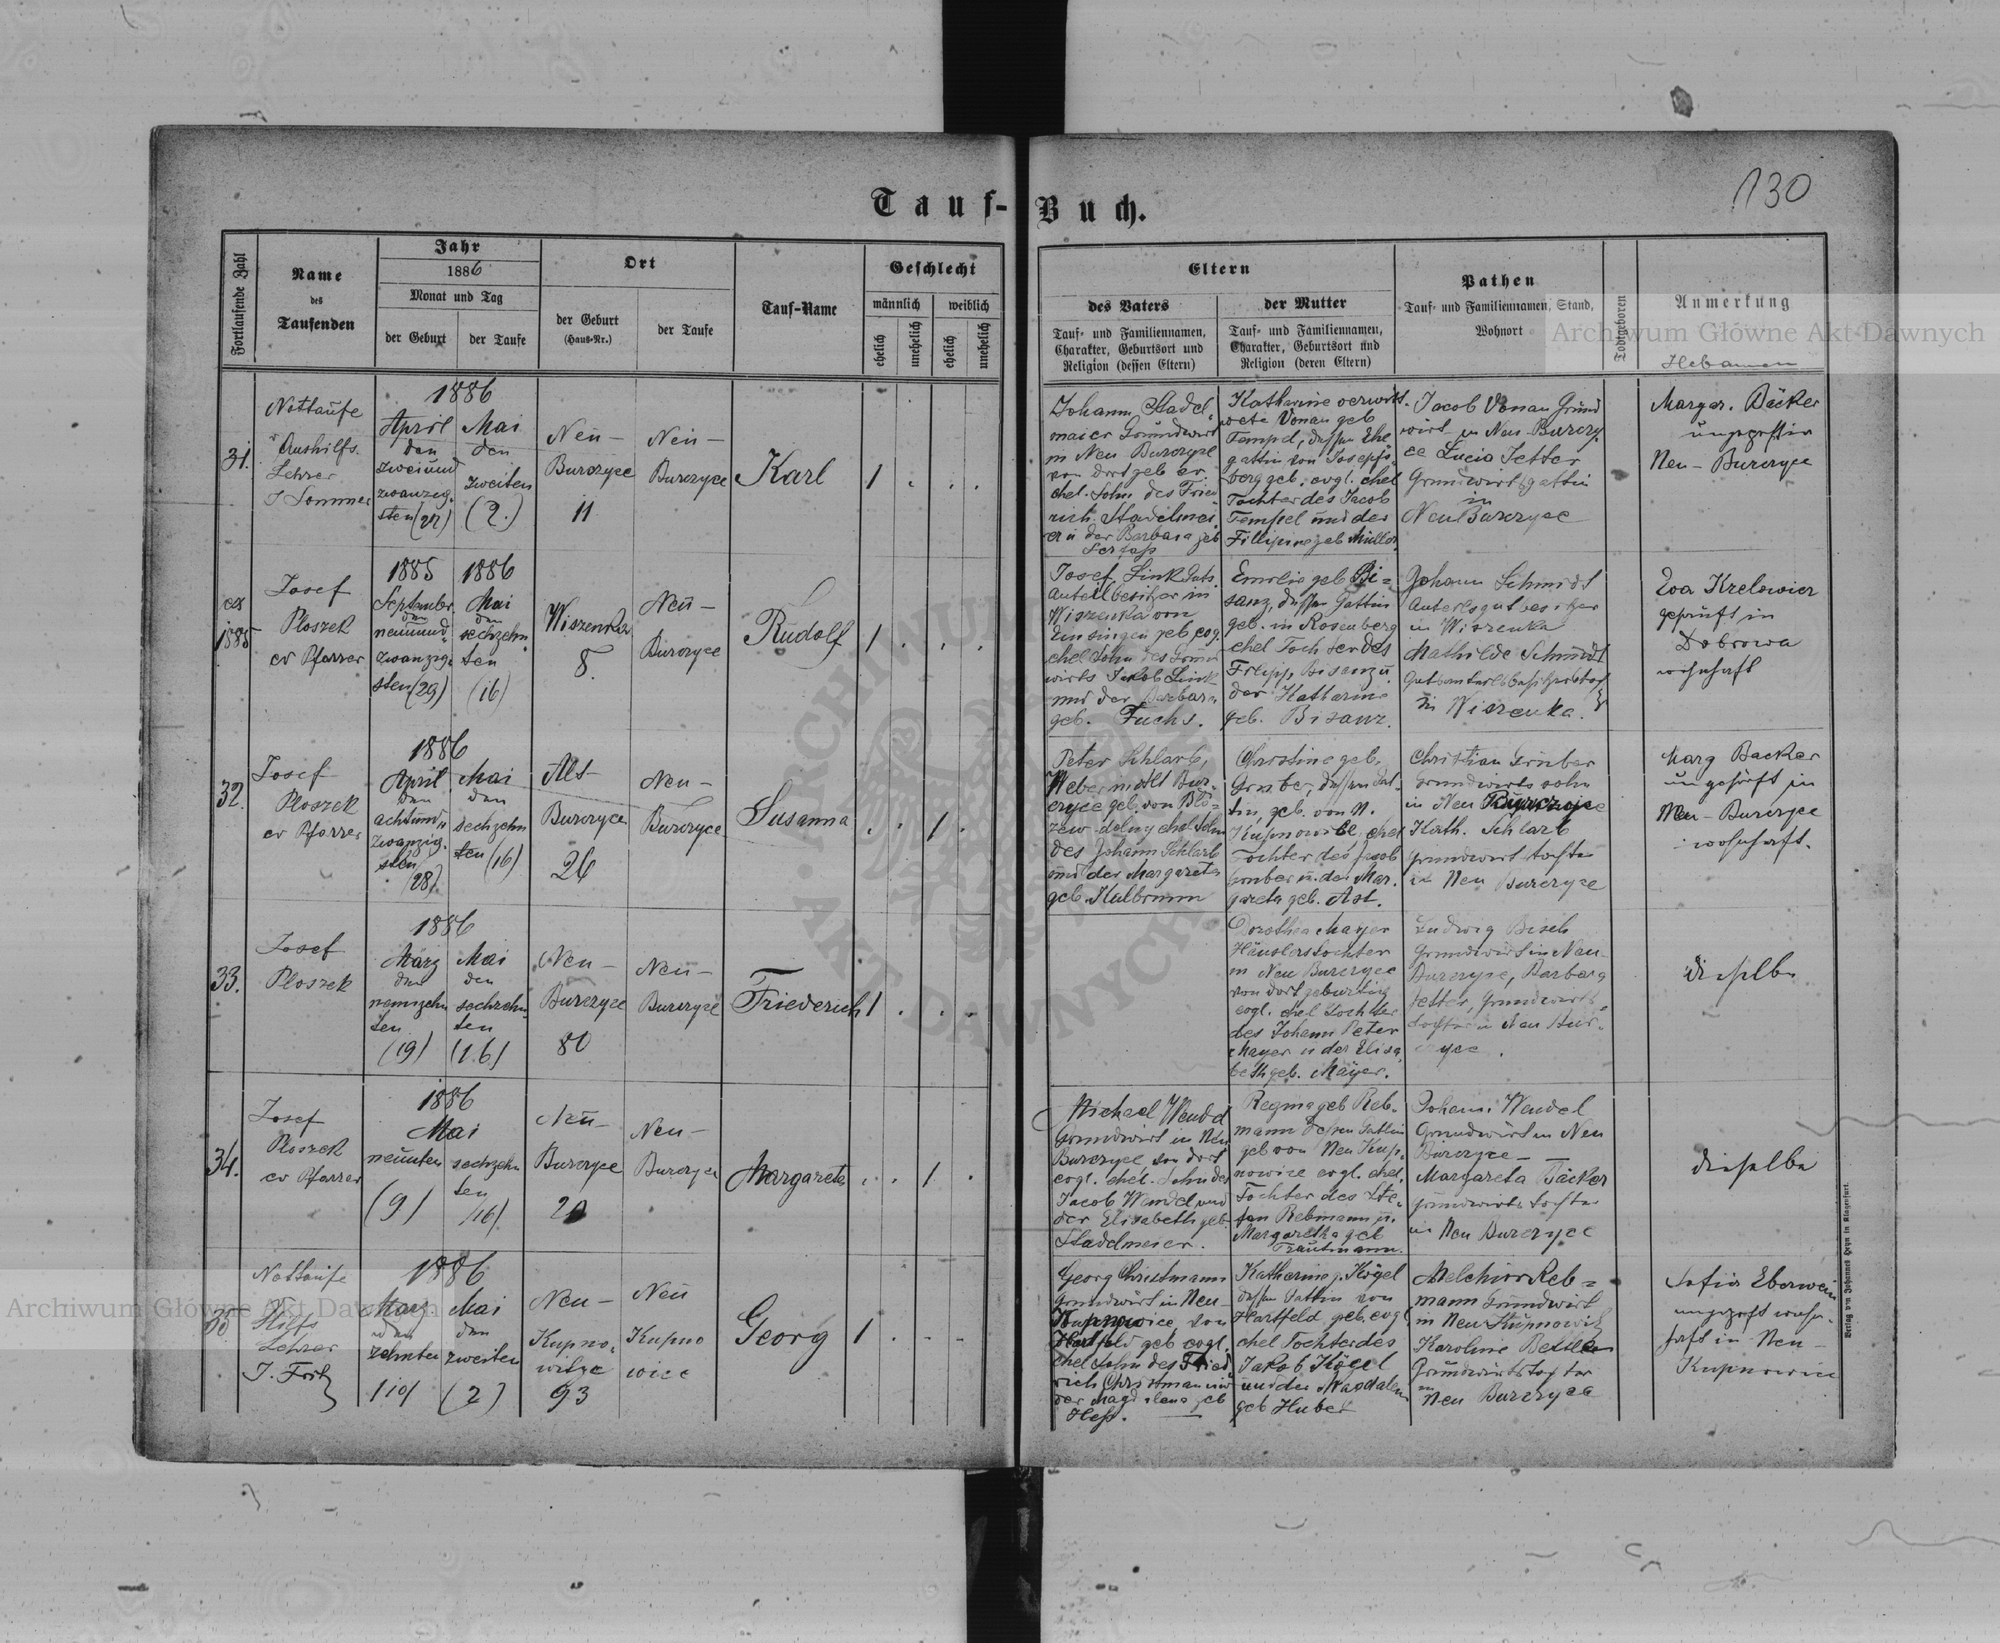 Tauf-Buch.
130
Fortlaufende Zahl
Name
des
Taufenden
Jahr
1886
Monat und Tag
der Geburt
der Taufe
Ort
der Geburt
(Haus-Nr.)
der Taufe
Tauf-Name
Geschlecht
männlich
weiblich
ehelich
unehelich
ehelich
unehelich
Eltern
des Vaters
Tauf- und Familiennamen,
Charakter, Geburtsort und
Religion (dessen Eltern)
der Mutter
Tauf- und Familiennamen,
Charakter, Geburtsort und
Religion (deren Eltern)
Pathen
Tauf- und Familiennamen, Stand,
Wohnort
Todtgeboren
Anmerkung
Hebammen
Archiwum Główne Akt Dawnych
31.
Nottaufe
Aushilfs
Lehrer
J Sommer
1886
April
den
zweiund
zwanzig.
sten (22)
Mai
den
zweiten
(2.)
Neu-
Burczyce
11
Neu-
Burczyce
Karl
1
Johann Stadel-
maier Grundwirt
in Neu Burczyce
von dort geb ev.
ehel. Sohn des Fried
rich Stadelmei
er u der Barbara geb
Katharine verwitt-
wete Vonau geb
Tempel, dessen Ehe
gattin von Josefs-
berg geb. evgl. ehel
Tochter des Jacob
Tempel und der
Fillipine geb Müller
Jacob Vonau Grund
wirt in Neu-Burczy
ce Lucia Jetter
Grundwirtsgattin
in
Neu Burczyce
Margar. Bäcker
Neu-Burczyce
ex
1885
Josef
Ploszek
ev Pfarrer
1885
September
den
neunund
zwanzig-
sten (29)
1886
Mai
den
sechzehn
ten
(16)
Wiszenka
8.
Neu-
Burczyce
Rudolf
1
Josef Link Guts.
anteilbesitzer in
Wiszenka von
geb evg.
ehel Sohn des Grund
wirts Jakob Link
und der Barbara
geb. Fuchs.
Emilie geb Bi-
sanz, dessen Gattin
geb. in Rosenberg
ehel Tochter des
Filipp Bisanz u
der Katharine
geb. Bisanz.
Johann Schmidt
Anteilsgutbesitzer
in Wiszenka
Mathilde Schmidt
in Wiszenka.
Eva
geprüft in
Dobrowa
wohnhaft
32.
Josef
Ploszek
ev Pfarrer
1886
April
den
achtund
zwanzig.
sten
(28).
Mai
den
sechzehn
ten (16)
Alt-
Burczyce
26
Neu-
Burczyce
Susanna
1
Peter Schlarb,
Weber in Alt Bur-
czyce geb. von
ehel Sohn
des Johann Schlarb
und der Margareta
geb.
Christine geb.
Gruber, dessen Gat-
tin, geb. von N.
Kupnowice ehel
Tochter des Jacob
Gruber u. der Mar.
gareta geb. Ast.
Christian Gruber
Grundwirts sohn
in Neu Burczyce
Kath. Schlarb
Grundwirts tochter
in Neu Burczyce
Marg Backer
ungeprüft in
Neu-Burczyce
wohnhaft.
33.
Josef
Ploszek
1886
März
den
neunzehn
ten
(19)
Mai
den
sechzehn
ten
(16)
Neu-
Burczyce
80
Neu-
Burczyce
Friederich
1
Dorothea Mayer
Häuslerstochter
in Neu Burczyce
von dort gebürtig
evgl. ehel Tochter
des Johann Peter
Mayer u der Elisa
beth geb. Mayer.
Ludwig Bisch
Grundwirt in Neu-
Burczyce, Barbara
Jetter, Grundwirts-
tochter in Neu Bur-
czyce.
dieselbe
34.
Josef
Ploszek
ev Pfarrer
1886
Mai
neunten
(9)
sechzehn
ten
(16).
Neu-
Burczyce
20
Neu-
Burczyce
Margareta
1
Michael Wendel
Grundwirt in Neu
Burczyce, von dort
evgl. ehel. Sohn des
Jacob Wendel und
der Elisabeth geb.
Stadelmeier.
Regina geb Reb-
mann dessen Gattin
geb von Neu Kup-
nowice evgl. ehel.
Tochter des Ste-
fan Rebmann u.
Margaretha geb
Trautmann.
Johann Wendel
Grundwirt in Neu
Burczyce -
Margareta Bäcker
Grundwirts tochter
in Neu Burczyce
dieselbe
35
Nottaufe
Hilfs
Lehrer
J. Fritz
1886
März
den
zehnten
(10)
Mai
den
zweiten
(2)
Neu-
Kupno-
witze
93
Neu
Kupno
wice
Georg
1
Georg Christmann
Grundwirt in Neu-
Kupnowice von
Hartfeld geb evgl.
ehel Sohn des Fried
rich Christmann und
der Magdalena geb
Heß.
Katharine g. Kögel
dessen Gattin von
Hartfeld geb. evgl
ehel Tochter des
Jakob Kögel
und der Magdalena
geb Huber
Melchior Reb-
mann Grundwirt
in Neu Kupnowitz
Karoline
Grundwirtstochter
in
Neu Burczyce
Sofia Eberwein
haft in Neu-
Kupnowice
Archiwum Główne Akt Dawnych
Verlag von Johannes Heyn in Klagenfurt.